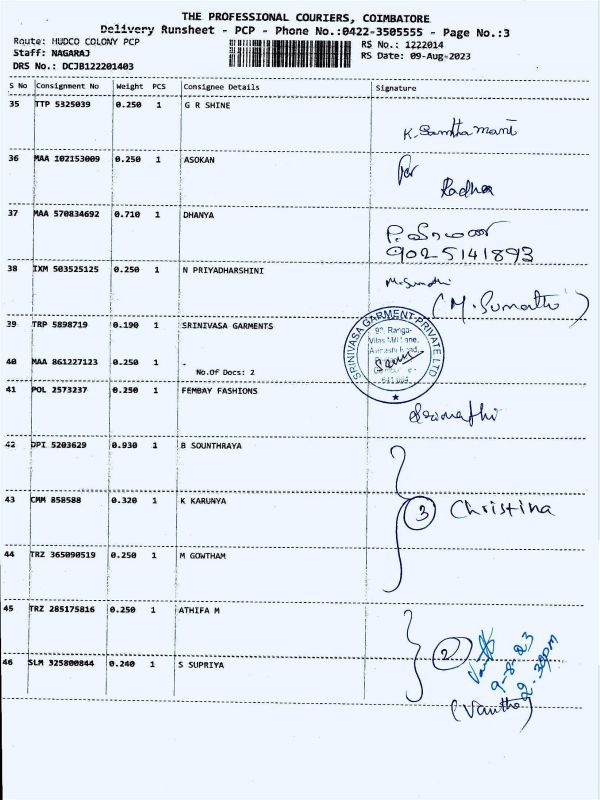 THE PROFESSIONAL COURIERS, COIMBATORE
Delivery Runsheet - PCP - Phone No.:0422-3505555 - Page No.:3
Route: HUDCO COLONY PCP
RS No.: 1222014
Staff: NAGARAJ
RS Date: 09-Aug-2023
DRS No.: DCJB122201403
S No Consignment No Weight PCS Consignee Details Signature
35 TTP 5325039 0.250 1 G R SHINE
K. Santhamani
36 MAA 102153009 0.250 1 ASOKAN
for
Radha
37 MAA 570834692 0.710 1 DHANYA
9025141893
38 IXM 503525125 0.250 1 N PRIYADHARSHINI
(M. Sumathi)
39 TRP 5898719 0.190 1 SRINIVASA GARMENTS
SRINIVASA GARMENT PRIVATE LTD
40 MAA 861227123 0.250 1 -
No.Of Docs: 2
41 POL 2573237 0.250 1 FEMBAY FASHIONS
42 DPI 5203629 0.930 1 B SOUNTHRAYA
43 CMM 858588 0.320 1 K KARUNYA
3 Christina
44 TRZ 365090519 0.250 1 M GOWTHAM
45 TRZ 285175816 0.250 1 ATHIFA M
2
9-8-23
2.30pm
46 SLM 325800844 0.240 1 S SUPRIYA